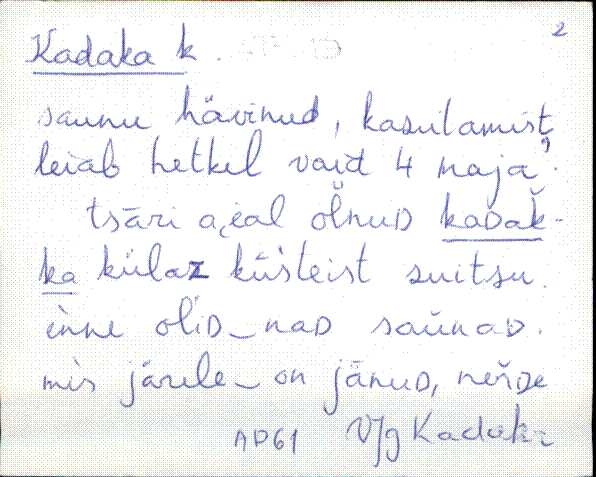 2
Kadaka k.
saunu hävinud, kasutamist
leiab hetkel vaid 4 maja.
tsāri a̭ial ol̆nuD kaDak̆-
ka külaz küs̀teist suitsu.
inne oliD‿naD saŭnaD.
mis järele‿on jänuD, neǹDe
AP61 V/g Kadaka